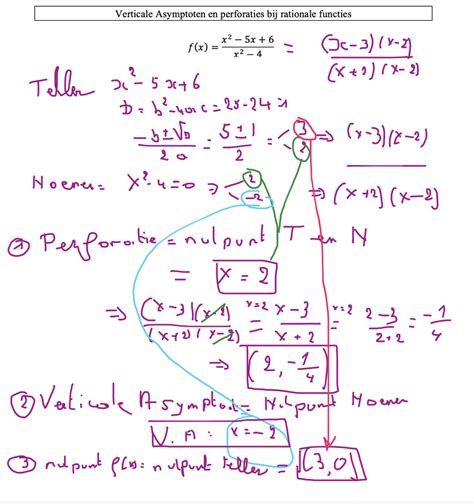 Verticale Asymptoten en perforaties bij rationale functies
f(x) = (x² − 5x + 6)/(x² − 4) = (x-3)(x-2)/(x+2)(x-2)
Teller x² - 5x + 6
D = b² - 4ac = 25 - 24 = 1
(-b ± √D)/2a = (5 ± 1)/2 = < 3 2 ⇒ (x-3)(x-2)
Noemer = x² - 4 = 0 ⇒ < 2 -2 ⇒ (x+2)(x-2)
① Perforatie = nulpunt T en N
= x = 2
⇒ (x-3)(x-2)/(x+2)(x-2) =^{x=2} (x-3)/(x+2) =^{x=2} (2-3)/(2+2) = -1/4
⇒ (2, -1/4)
② Verticale Asymptoot = Nulpunt Noemer
V.A: x = -2
③ nulpunt f(x) = nulpunt teller = (3,0)